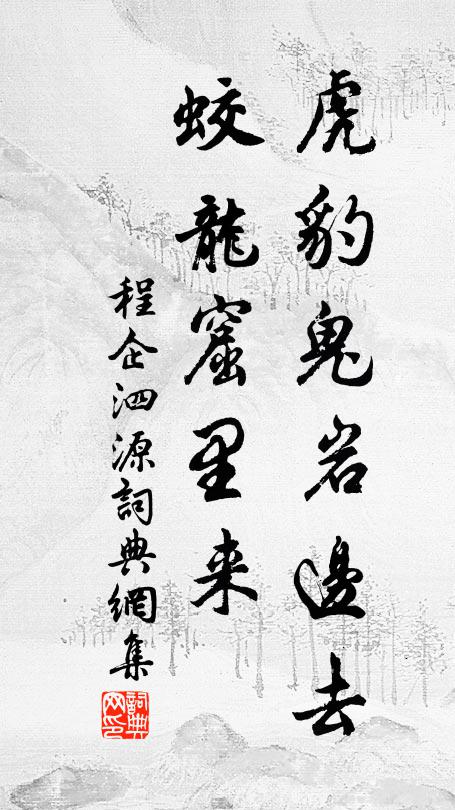 虎豹鬼岩邊去
蛟龍窟里来
程企泗源詞典網集
詞典网印